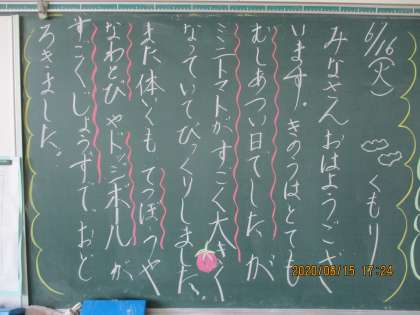 6/16（火）　くもり
みなさんおはようござ
います。きのうはとても
むしあつい日でしたが
ミニトマトがすごく大きく
なっていてびっくりしました。
また体いくもてつぼうや
なわとびやドッジボールが
すごくじょうずで、おど
ろきました。
2020/06/15 17:24